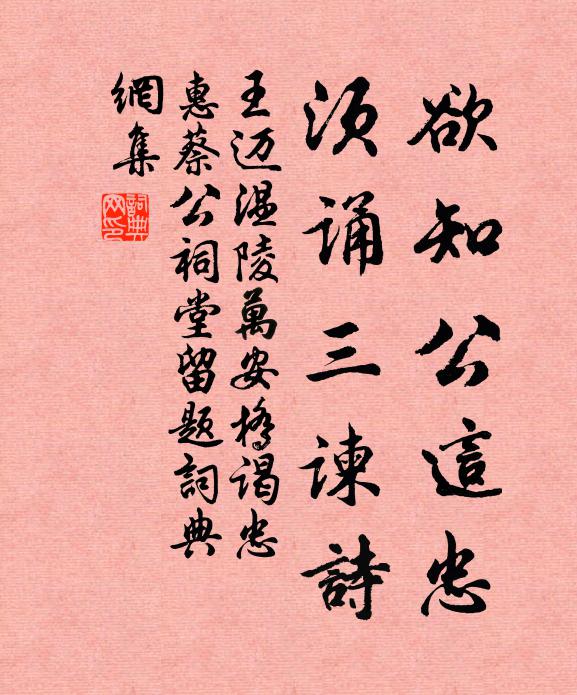 欲知公這忠
須诵三諫詩
王迈温陵萬安橋谒忠
惠蔡公祠堂留题詞典
網集
詞典網印